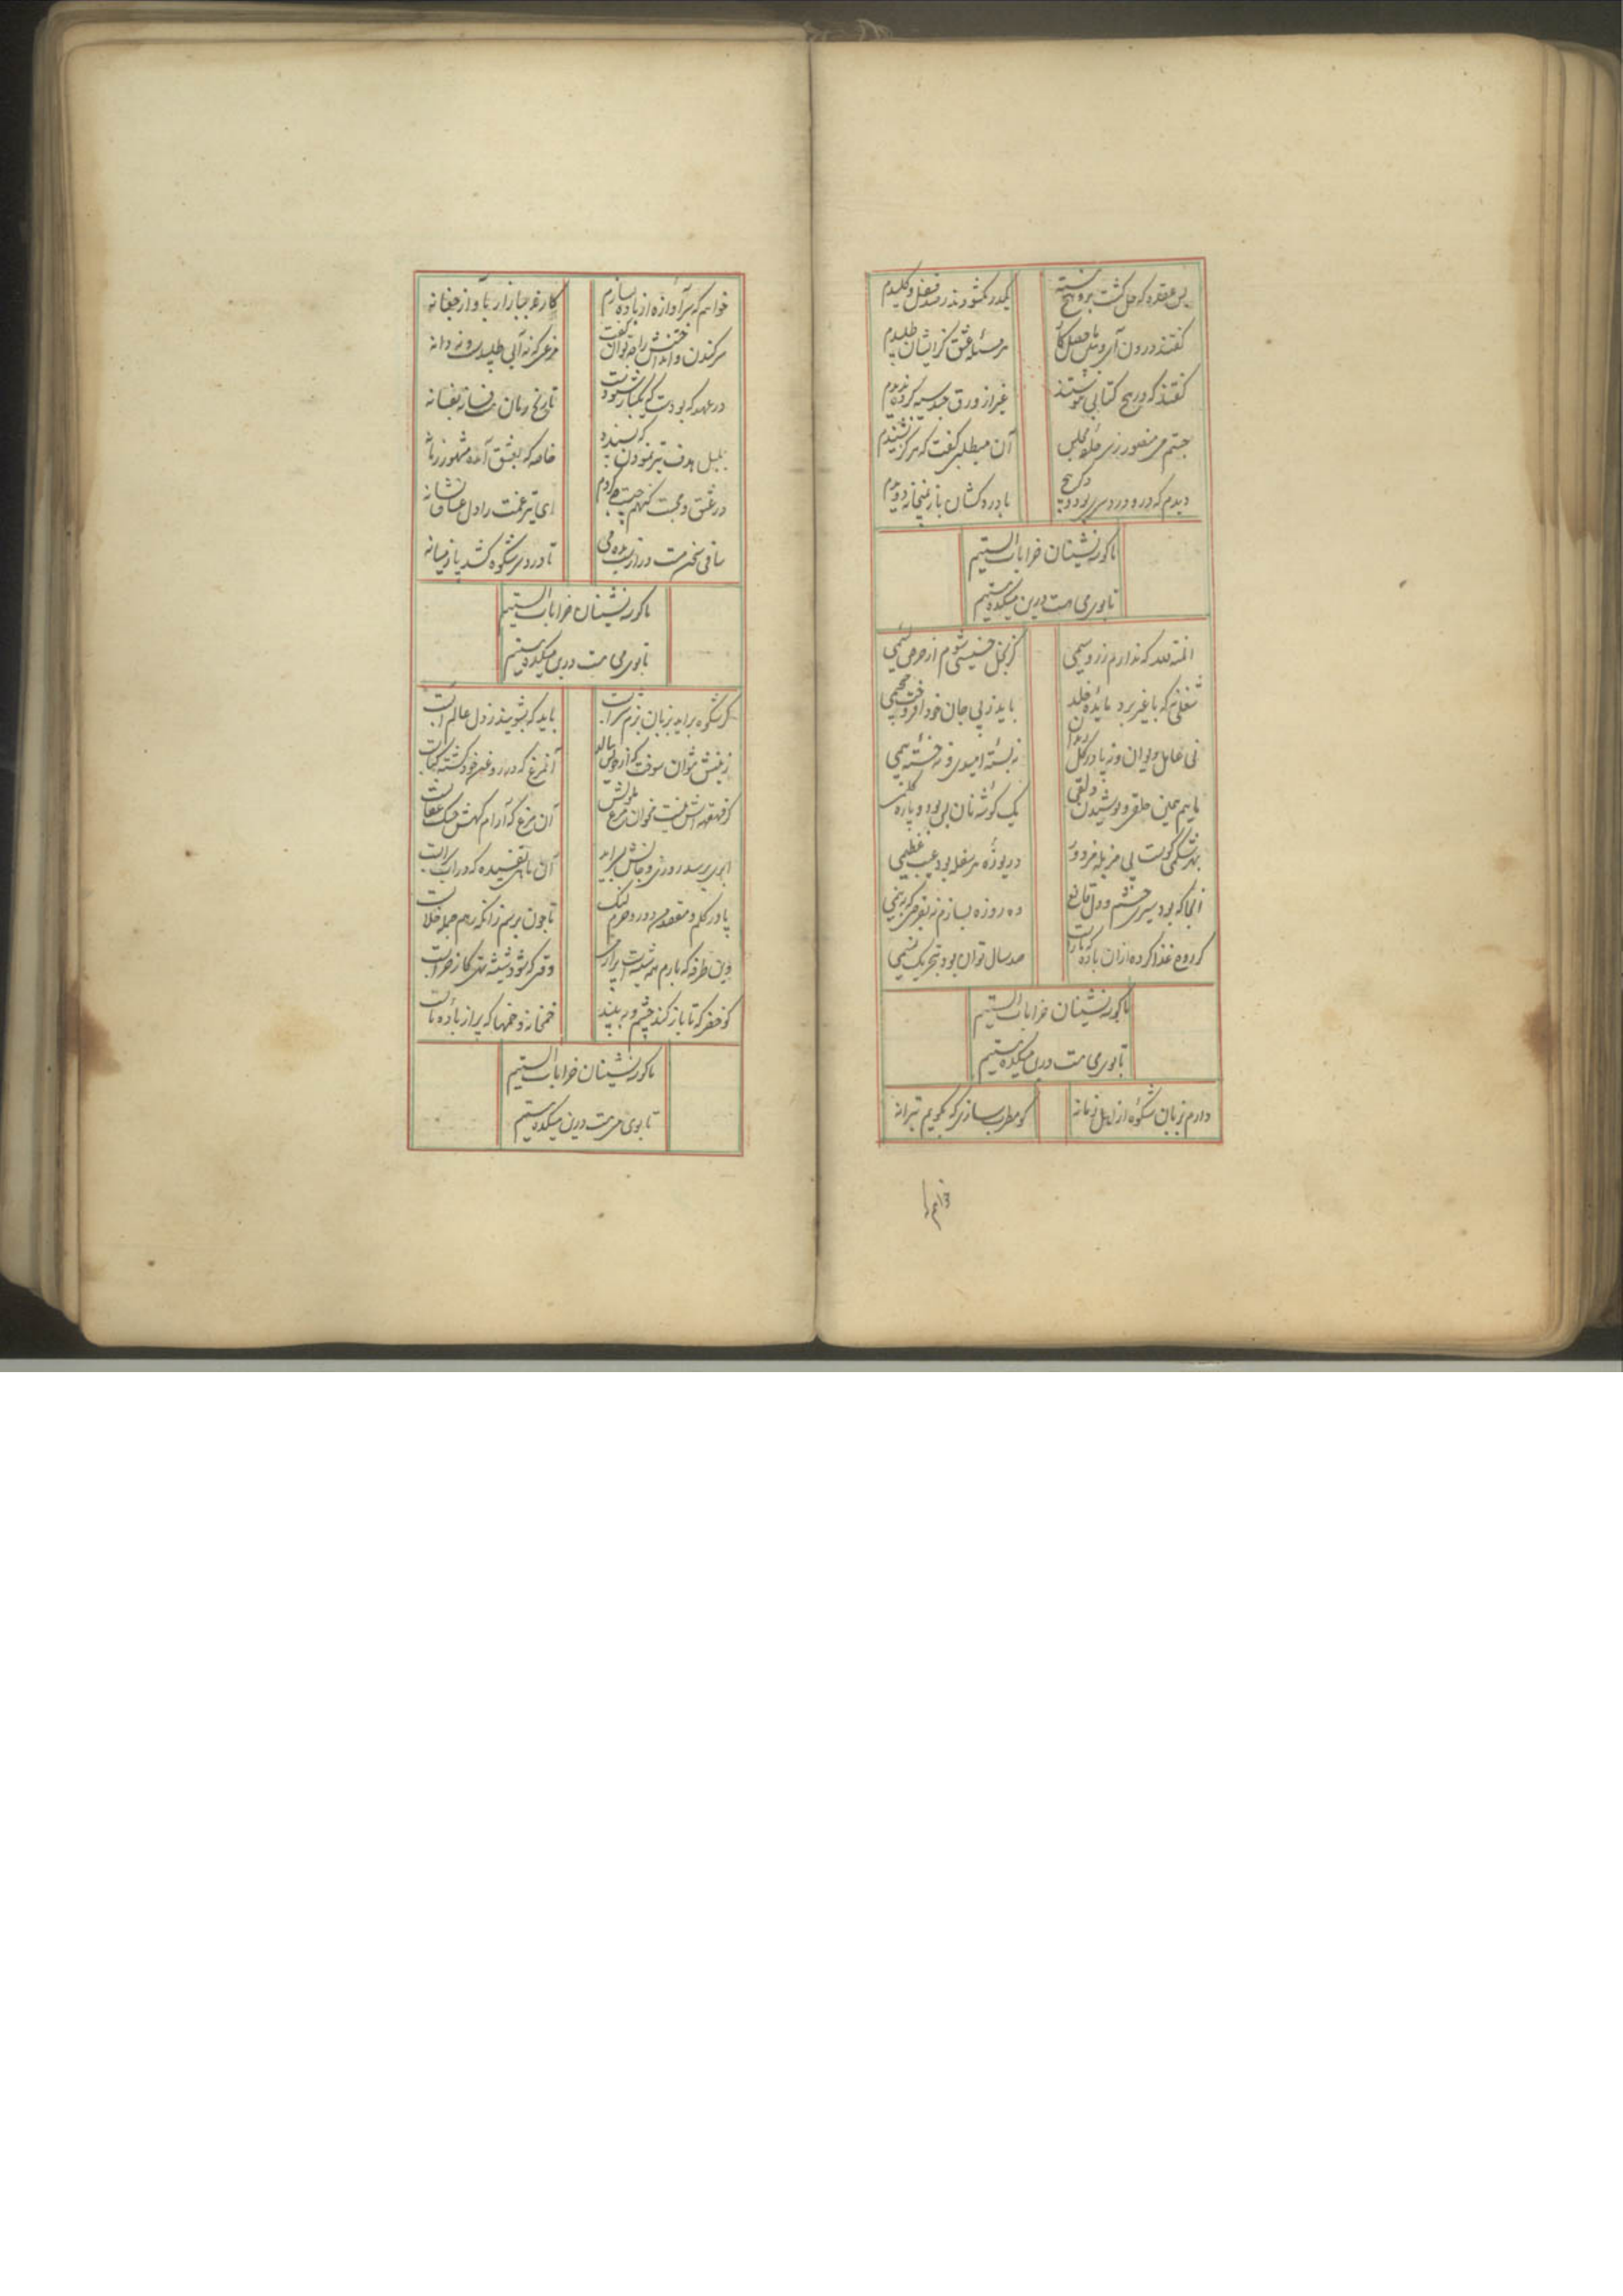 بس عقده که حل گشت برو هیچ نبسته
یکدر نگشودند ز صد قفل و کلیدم
گفتند درون آی و ببین ماحصل کار
هر مسئله عشق کزایشان طلبیدم
گفتند که در هیچ کتابی ننوشتند
غیر از ورق چند سیه کرده ندیدم
جستم می منصور ز سر حلقه مجلس
آن می طلبی گفت که هرگز نشنیدم
دیدم که درو درد سری بود و دگر هیچ
با دردکشان باز بمیخانه دویدم
ما گوشه نشینان خرابات الستیم
تا بوی می هست درین میکده مستیم
المنة لله که ندارم زر و سیمی
کز بخل خسیسی شوم از حرص لئیمی
شغلی نه که با غیر برد مایده خلد
باید ز پی جان خود افروخت جحیمی
نی عامل دیوان و نه پا در گل زندان
نه بسته امیدی و نه خسته بیمی
ماییم همین حلقی و پوشیدن دلقی
یک گوشه نان بس بود و پاره گلیمی
بهر شکمی کوست پی مزبله مزدور
دریوزه هر سفله بود عیب عظیمی
انجا که بود سیری چشم و دل قانع
ده روزه بسازم نه بقرص که بنیمی
که روح غذا کرده ازان باده که ما راست
صد سال توان بود بتحریک نسیمی
ما گوشه نشینان خرابات الستیم
تا بوی می هست درین میکده مستیم
دارم ز زبان شکوه از اهل زمانه
کو مطرب سازی که بگویم بترانه
خواهم
خواهم که سرآوازه از باده بسازم
کارند ببازار بآواز چغانه
سرکندن و انداختنش را چه توان گفت
مرغی که نه آبی طلبیدست و نه دانه
در عهد که بودست که یکبار شنودست
تاریخ زمان هست فسانه بفسانه
بلبل هدف تیر نمودن که پسندد
خاصه که بعشق آمده مشهور زمانه
در عشق و محبت گنهم چیست چه کردم
ای تیر غمت را دل عشاق نشانه
ساقی سخن مست درازست بده می
تا درد سر شکوه کشد پا ز میانه
ما گوشه نشینان خرابات الستیم
تا بوی می هست درین میکده مستیم
گر شکوه برآید بزبان بزم شرابست
باید که بشویند ز دل عالم آبست
ز نیش نتوان سوخت گر از خویش بنالد
آنمرغ که در روغن خود گشته کبابست
گر قهقهه اش نیست مخوان مرغ ملولش
آن مرغ که آرام گهش چنگ عقابست
ابری برسد روزی و جانش ببر آید
آن ماهی تفسیده که در آب سرابست
پا در گلم و مقصد من دور و حرم لنگ
تا چون برسم زانکه رهم جمله خلابست
وین طرفه که بارم همه شیشه است پر از می
وقتی که شود شیشه تهی کار خرابست
کو خضر که تا باز کند چشم و ببیند
خمخانه و خمها که پر از باده نابست
ما گوشه نشینان خرابات الستیم
تا بوی می هست درین میکده مستیم